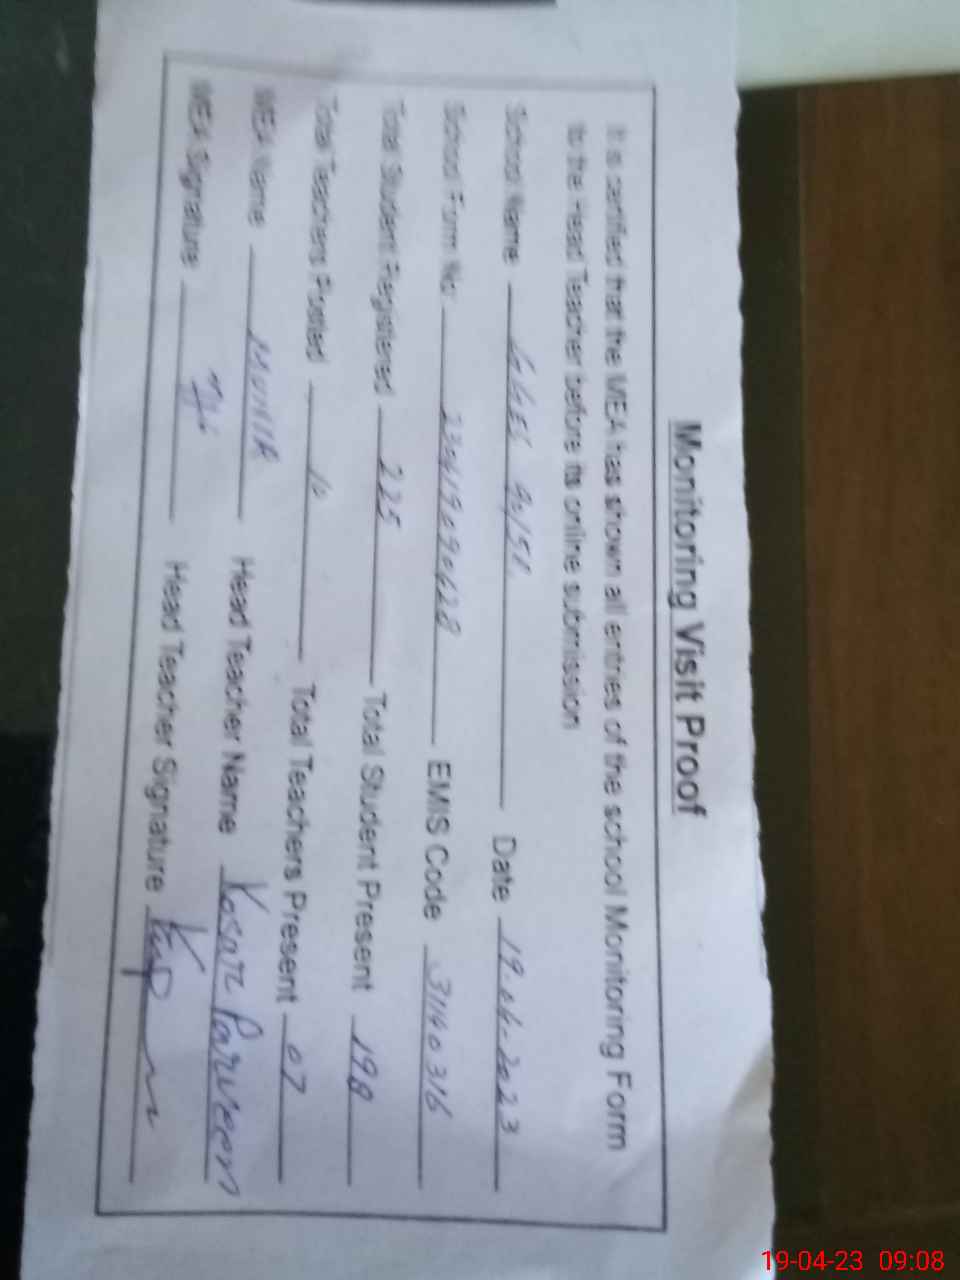 Monitoring Visit Proof
It is certified that the MEA has shown all entries of the school Monitoring Form
to the Head Teacher before its online submission
School Name GGES 90/5L Date 19-04-2023
School Form No: EMIS Code 31140316
Total Student Registered 225 Total Student Present 198
Total Teachers Posted 10 Total Teachers Present 07
MEA Name Head Teacher Name Parveen
MEA Signature Head Teacher Signature
19-04-23 09:08